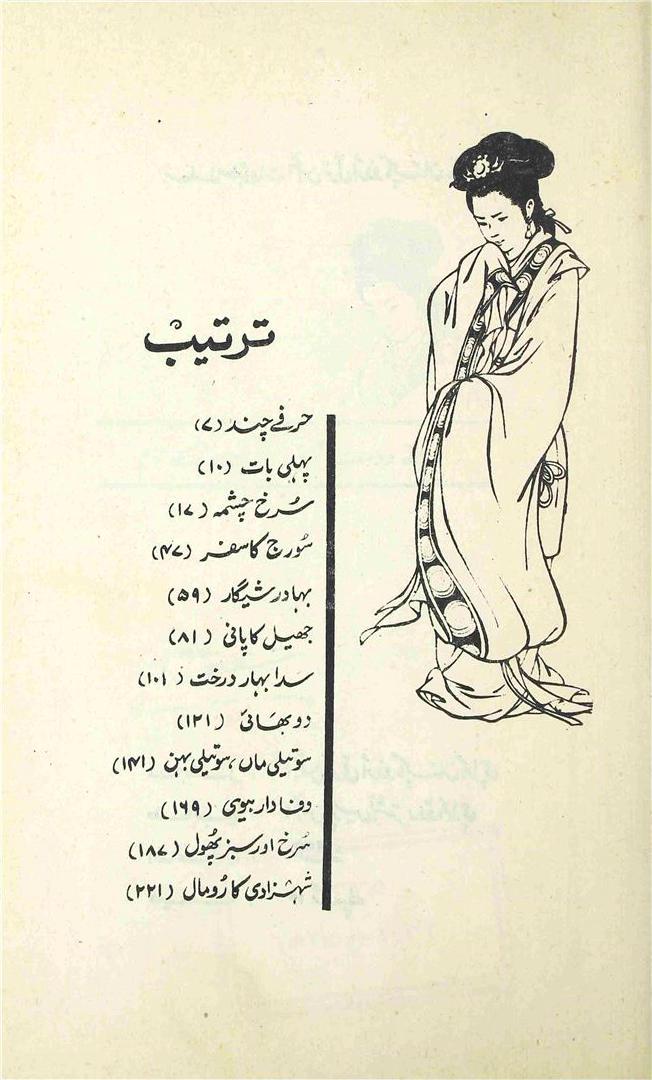 ترتیب
حرفے چند (۷)
پہلی بات (۱۰)
سُرخ چشمہ (۱۷)
سُورج کا سفر (۴۷)
بہادر شیگار (۵۹)
جھیل کا پانی (۸۱)
سدا بہار درخت (۱۰۱)
دو بھائی (۱۲۱)
سوتیلی ماں، سوتیلی بہن (۱۴۱)
وفادار بیوی (۱۶۹)
سُرخ اور سبز پھُول (۱۸۷)
شہزادی کا رُومال (۲۲۱)